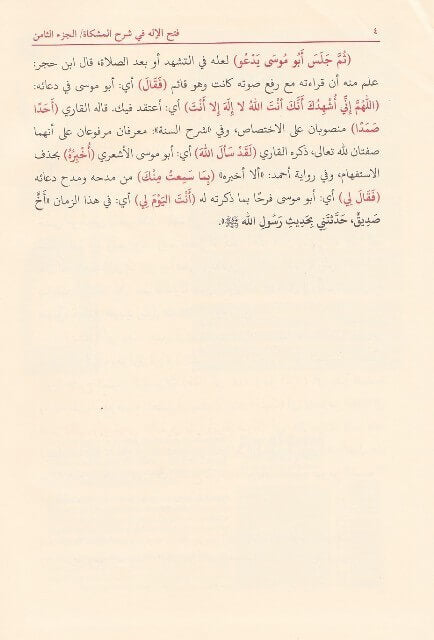 ٤ فتح الإله في شرح المشكاة/ الجزء الثامن
(ثُمَّ جَلَسَ أَبُو مُوسَى يَدْعُو) لعله في التشهد أو بعد الصلاة، قال ابن حجر:
علم منه أن قراءته مع رفع صوته كانت وهو قائم (فَقَالَ) أي: أبو موسى في دعائه:
(اللَّهُمَّ إِنِّي أُشْهِدُكَ أَنَّكَ أَنْتَ اللهُ لا إِلَهَ إِلا أَنْتَ) أي: أعتقد فيك. قاله القاري (أَحَدًا
صَمَدًا) منصوبان على الاختصاص، وفي «شرح السنة» معرفان مرفوعان على أنهما
صفتان لله تعالى، ذكره القاري (لَقَدْ سَأَلَ اللهَ) أي: أبو موسى الأشعري (أُخْبِرُهُ) بحذف
الاستفهام، وفي رواية أحمد: «ألا أخبره» (بِمَا سَمِعتُ مِنْكَ) من مدحه ومدح دعائه
(فَقَالَ لِي) أي: أبو موسى فرحًا بما ذكرته له (أَنْتَ اليَوْمَ لِي) أي: في هذا الزمان «أَخٌ
صَدِيقٌ، حَدَّثْتَنِي بِحَدِيثِ رَسُولِ الله ﷺ».